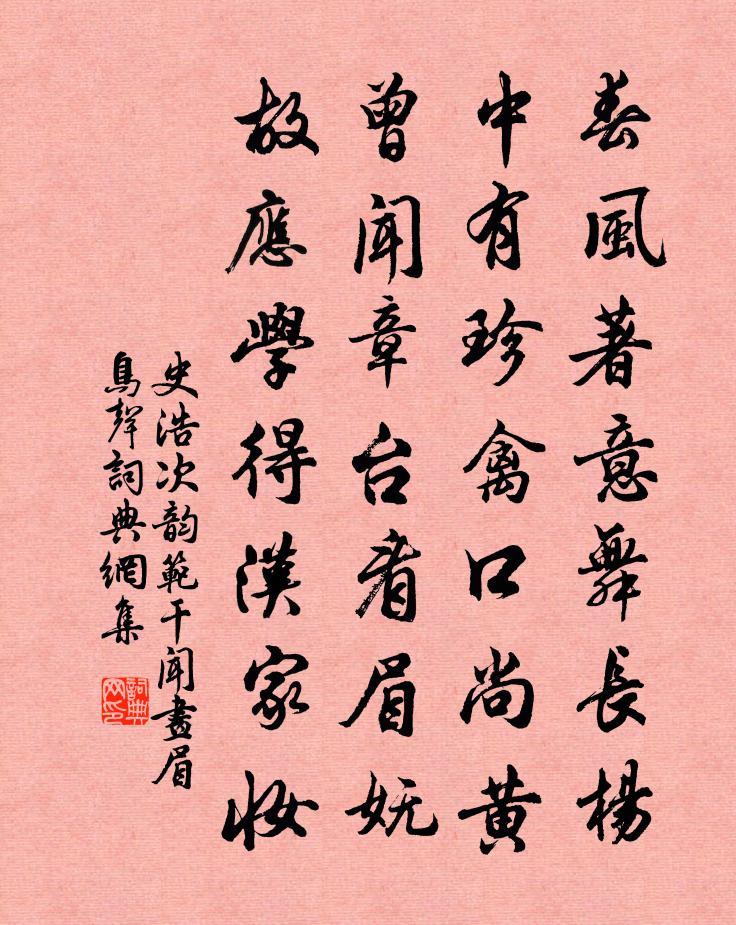 春風著意舞長楊
中有珍禽口尚黄
曾聞章台看眉妩
故應學得漢家妝
史浩次韵範干闻畫眉
鳥聲詞典網集
詞典网印